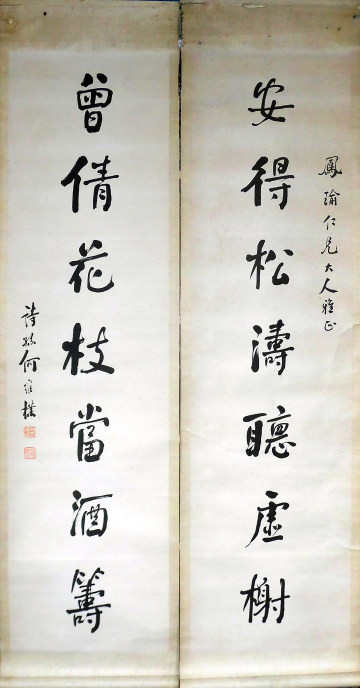 鳳瑜仁兄大人雅正
安得松濤聽虛榭
曾倩花枝當酒籌
詩孫何維樸